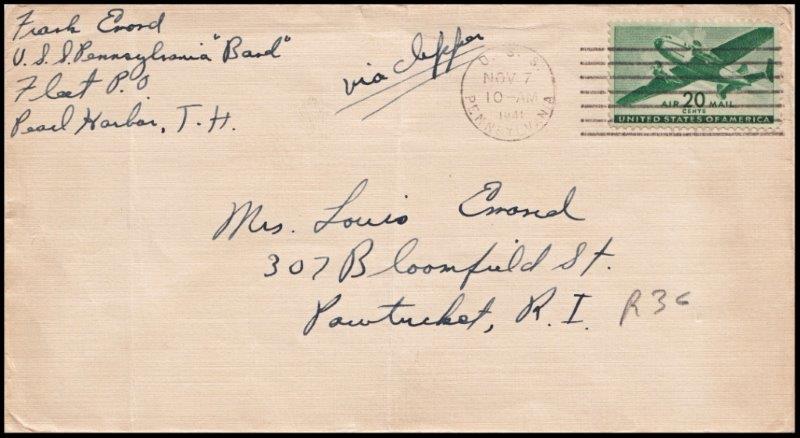 Frank Emond
U.S.S. Pennsylvania "Band"
Fleet P.O
Pearl Harbor, T.H.
via clipper
U. S. S.
NOV 7
10-AM
1941
PENNSYLVANIA
AIR 20 MAIL
CENTS
UNITED STATES OF AMERICA
Mrs. Louis Emond
307 Bloomfield St.
Pawtucket, R.I.
R3c